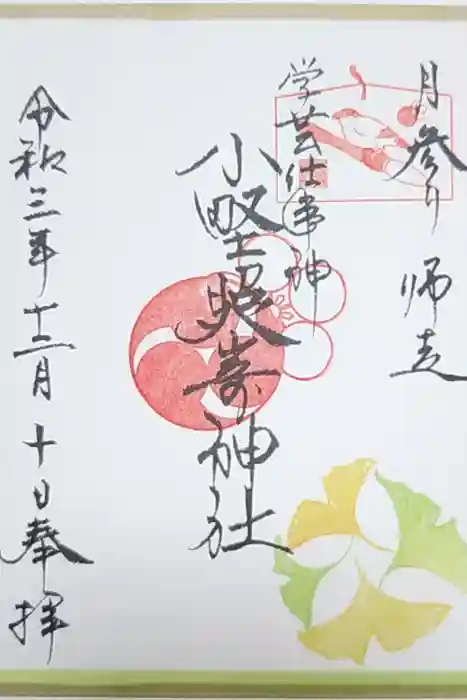 月参り 师走
学芸仕事神
小野照崎神社
令和三年十二月十日奉拝